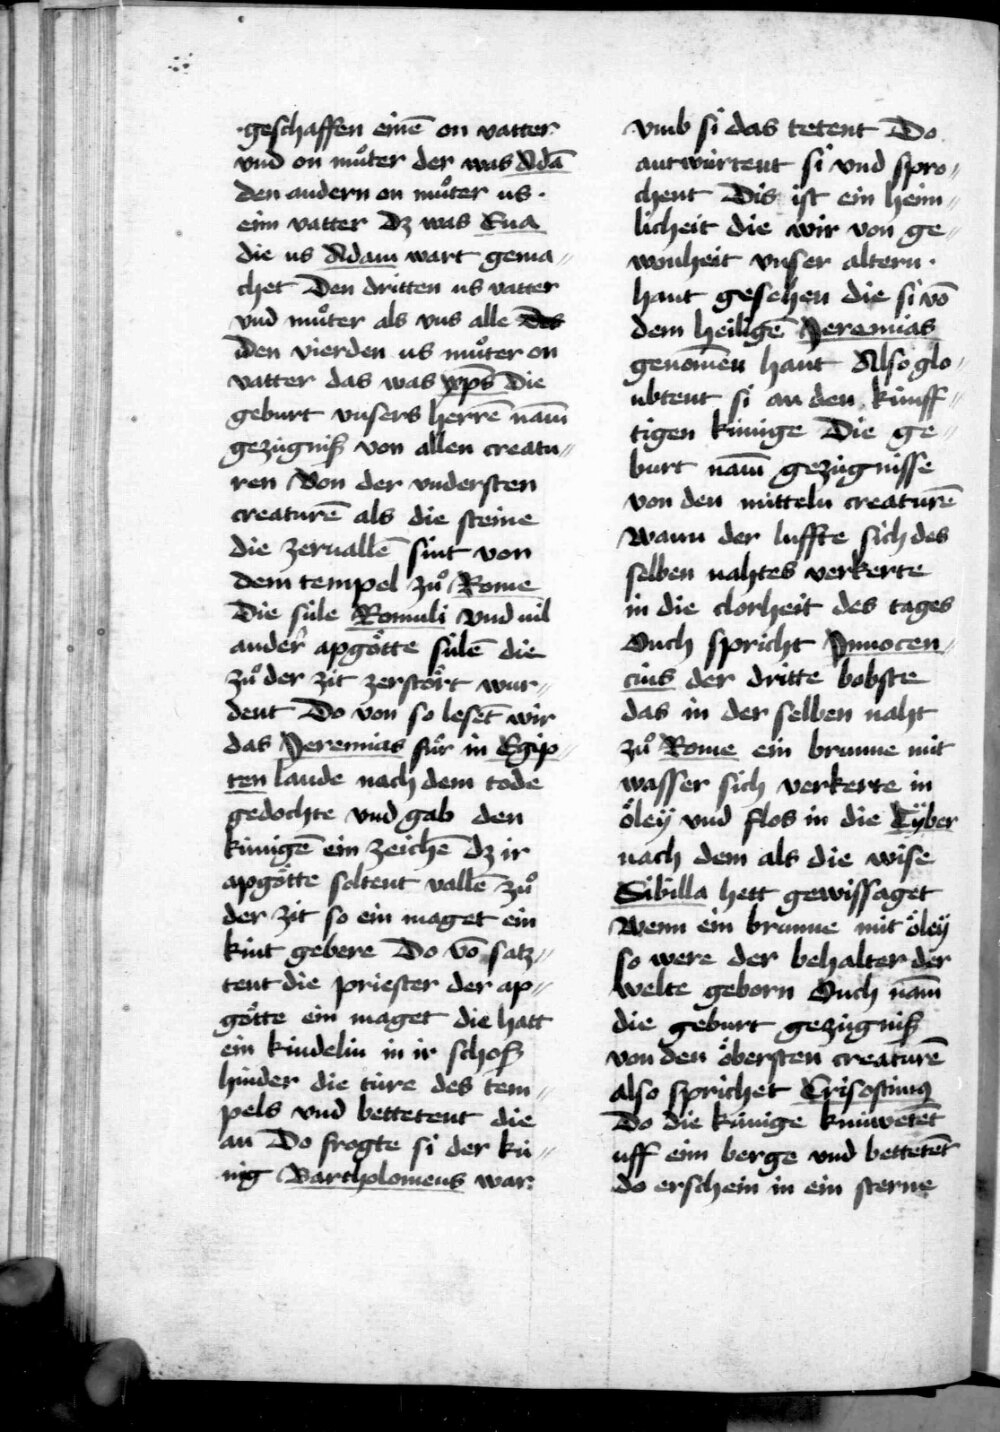 geschaffen einē on vatter
vnd on muͦter der was Adā
den andern on muͦter us
eim vatter Dz was Eua
die us Adam wart gema〃
chet Den dritten us vatter
vnd muͦter als vns alle des
den vierden us muͦter on
vatter das was xp̄s Die
geburt vnsers herrē nam̄
gezúgniß von allen creatu〃
ren Von der vndersten
creaturē als die steine
die zeruallē sint von
dem tempel zuͦ Rome
Die súle Romuli vnd vil
ander apgoͤtte súlē die
zuͦ der zit zerstoͤrt wur〃
dent Do von so lesēt wir
das Jeremias fuͦr in Egip〃
ten lande nach dem tode
gedochte vnd gab den
kúnigē ein zeichē Dz ir
apgoͤtte soltent vallē zuͦ
der zit so ein maget ein
kint gebere Do vō satz〃
tent die priester der ap〃
goͤtte ein maget die hatt
ein kindelin in ir schoß
hinder die túre des tem〃
pels vnd bettetent die
an Do frogte si der kú〃
nig Bartholomeus war
vmb si das tetent Do
antwúrtent si vnd spro〃
chent Dis ist ein heim〃
licheit die wir von ge〃
wonheit vnser altern
hant gesehen die si vō
dem heiligē Jeremias
genom̄en hant Also glo〃
ubtent si an den kúnff〃
tigen kúnige Die ge〃
burt nam̄ gezúgnisse
von den mitteln creaturē
Wann der luffte sich des
selben nahtes verkerte
in die clorheit des tages
Ouch spricht Jnnocen〃
cius der dritte bobste
das in der selben naht
zuͦ Rome ein brunne mit
wasser sich verkerte in
oͤleÿ vnd flos in die Tÿber
nach dem als die wise
Sibilla hett gewissaget
Wenn ein brunne mit oͤleÿ
so were der behalter der
welte geborn Ouch nam̄
die geburt gezúgniß
von den oͤbersten creaturē
also sprichet Crisostimꝰ
Do die kúnige knúwetēt
uff eim berge vnd bettetēt
do erschein in ein sterne